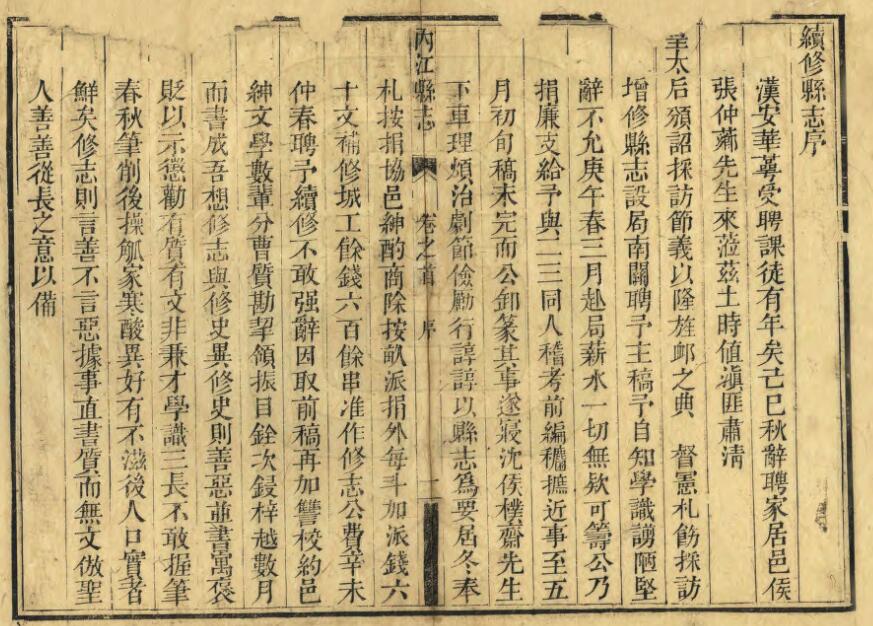 續修縣志序
漢安華蕚受聘課徒有年矣己巳秋辭聘家居邑侯
張仲蕭先生來蒞茲土時値滇匪肅淸
皇太后頒詔採訪節義以隆旌卹之典 督憲札飭採訪
增修縣志設局南關聘予主稿予自知學識謭陋堅
辭不允庚午春三月赴局薪水一切無欵可籌公乃
捐廉支給予與二三同人稽考前編穮摭近事至五
月初旬稿未完而公卸篆其事遂寢沈侯樸齋先生
內江縣志 卷之首 序 一
下車理煩治劇節儉勵行諄諄以縣志爲要居冬奉
札按捐協邑紳酌商除按畝派捐外每斗加派錢六
十文補修城工餘錢六百餘串准作修志公費辛未
仲春聘予續修不敢强辭因取前稿再加讐校約邑
紳文學數輩分曹質勘挈領振目銓次鋟梓越數月
而書成吾想修志與修史異修史則善惡並書寓褒
貶以示懲勸有質有文非兼才學識三長不敢握筆
春秋筆削後操觚家寒酸異好有不滋後人口實者
鮮矣修志則言善不言惡據事直書質而無文倣聖
人善善從長之意以備